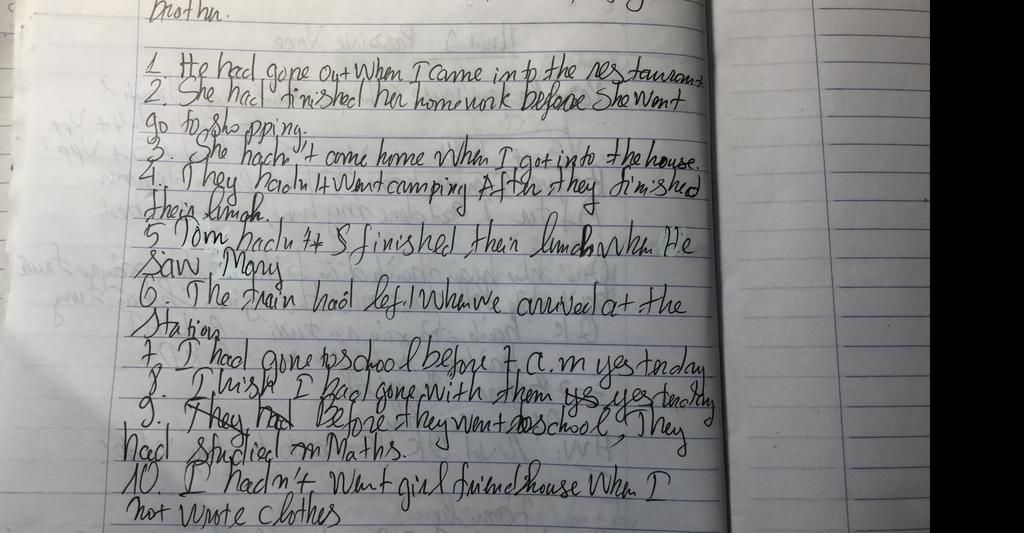 brother.
1. He had gone out when I came into the restaurant
2. She had finished her homework before she went
go to shopping.
3. She hadn't come home when I got into the house.
4. They hadn't went camping After they finished
their lunch.
5 Tom hadn't finished their lunch when He
saw Mary
6. The train had left when we arrived at the
station
7. I had gone to school before 7 a.m yesterday
8. I wish I had gone with them yesterday
9. They had Before they went to school, They
had studied Maths.
10. I hadn't went girlfriend house when I
not wrote clothes